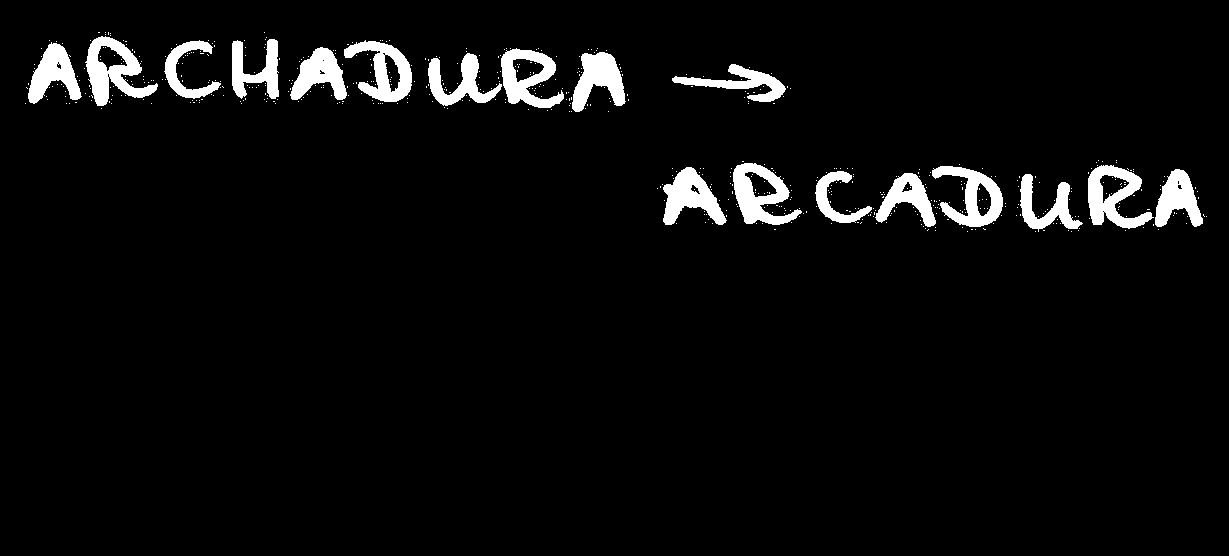 ARCHADURA →
ARCADURA